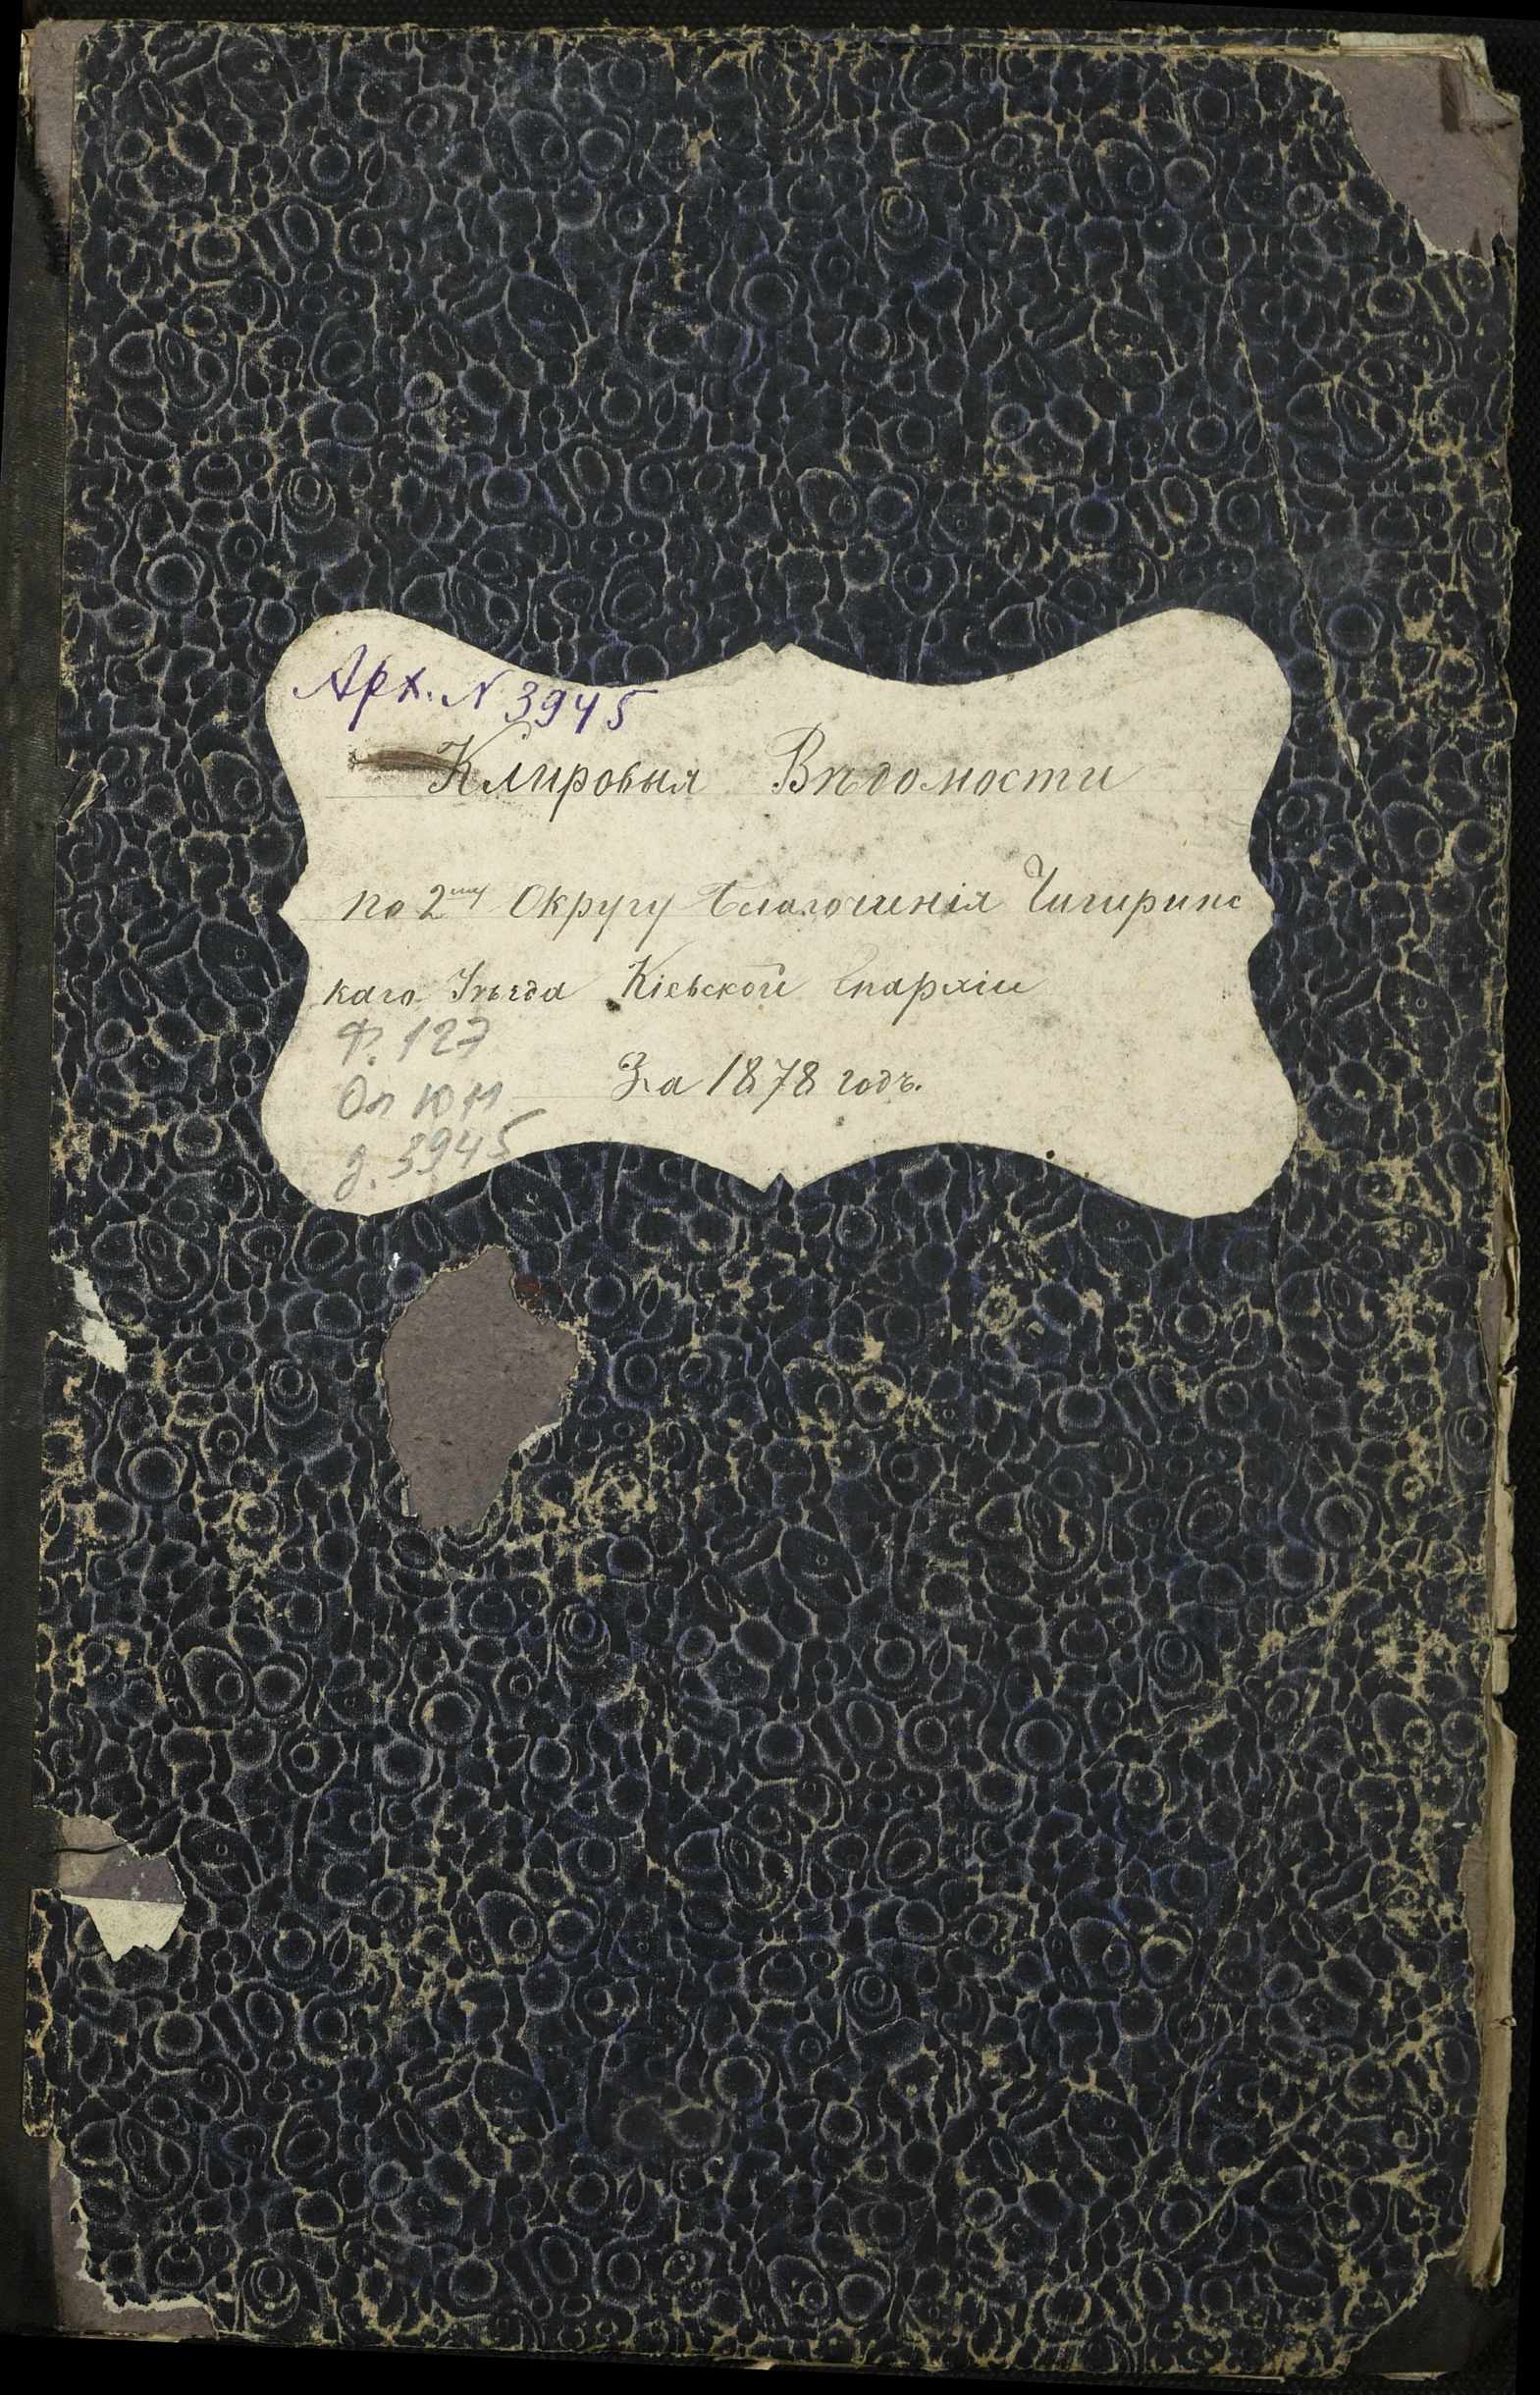 Арх. N 3945
Клировыя Вѣдомости
по 2му Округу Благочинія Чигиринс
каго Уѣзда Кіевской Епархіи
Ф. 127
За 1878 годъ.
Оп 1011
д. 3945